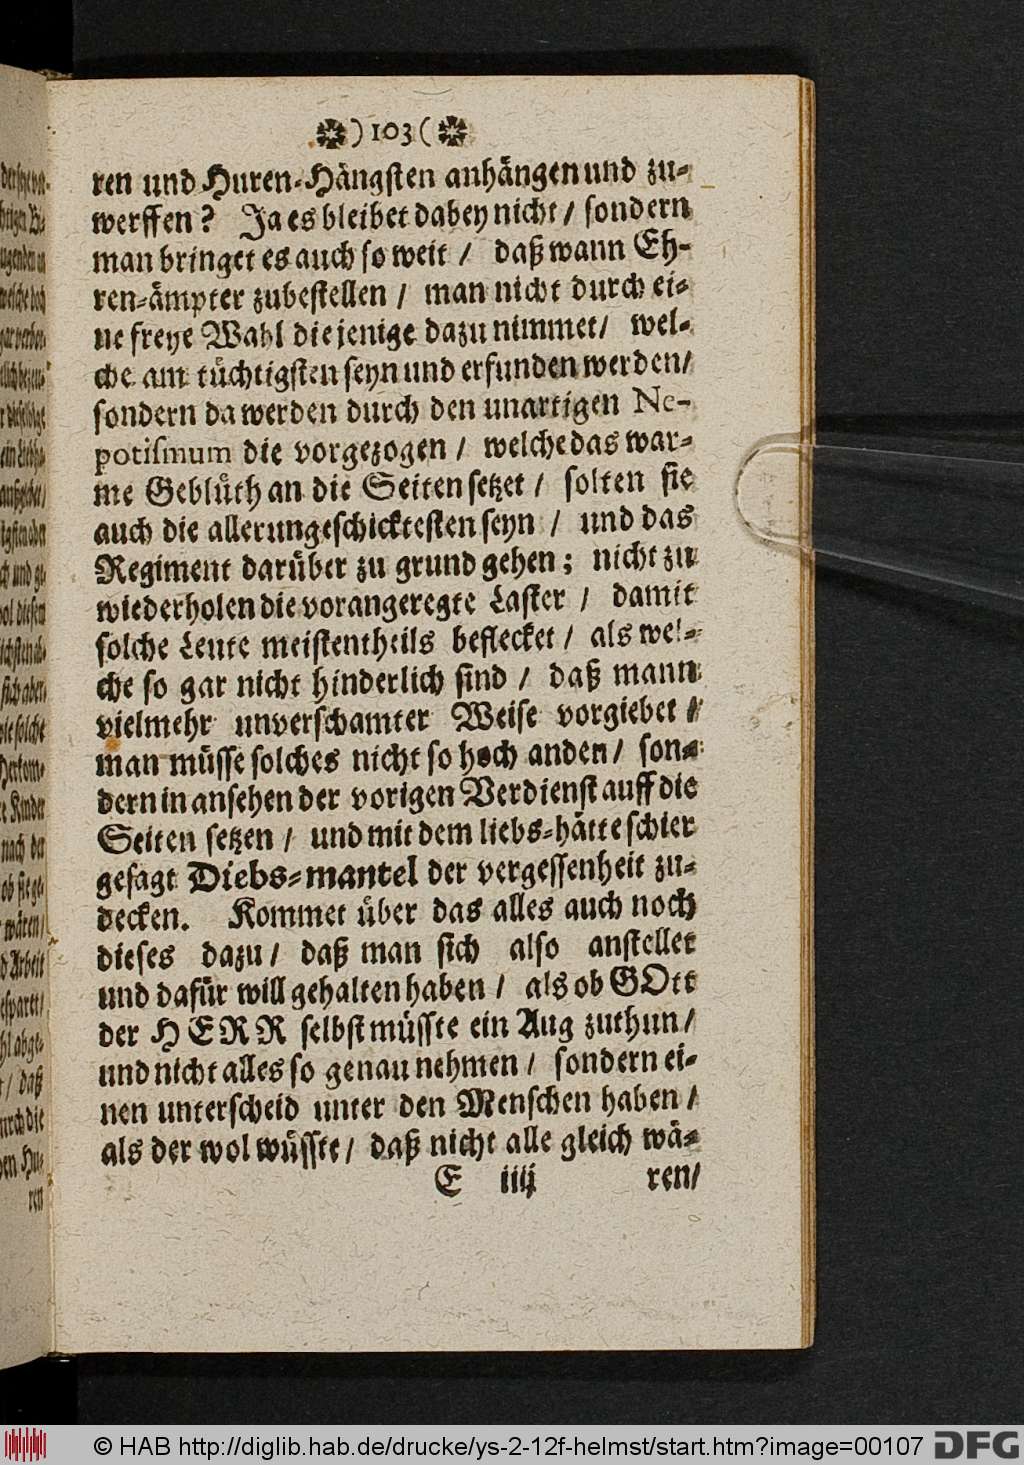 )103(
ren und Huren-Hängsten anhängen und zu-
werffen? Ja es bleibet dabey nicht / sondern
man bringet es auch so weit / daß wann Eh-
ren-ämpter zubestellen / man nicht durch ei-
ne freye Wahl die jenige dazu nimmet / wel-
che am tüchtigsten seyn und erfunden werden /
sondern da werden durch den unartigen Ne-
potismum die vorgezogen / welche das war-
me Geblüth an die Seiten setzet / solten sie
auch die allerungeschicktesten seyn / und das
Regiment darüber zu grund gehen; nicht zu
wiederholen die vorangeregte Laster / damit
solche Leute meistentheils beflecket / als wel-
che so gar nicht hinderlich sind / daß mann
vielmehr unverschamter Weise vorgiebet /
man müsse solches nicht so hoch anden / son-
dern in ansehen der vorigen Verdienst auff die
Seiten setzen / und mit dem liebs-hätte schier
gesagt Diebs-mantel der vergessenheit zu-
decken. Kommet über das alles auch noch
dieses dazu / daß man sich also anstellet
und dafür will gehalten haben / als ob GOtt
der HERR selbst müsste ein Aug zuthun /
und nicht alles so genau nehmen / sondern ei-
nen unterscheid unter den Menschen haben /
als der wol wüsste / daß nicht alle gleich wä-
E iiij ren /
© HAB http://diglib.hab.de/drucke/ys-2-12f-helmst/start.htm?image=00107
DFG